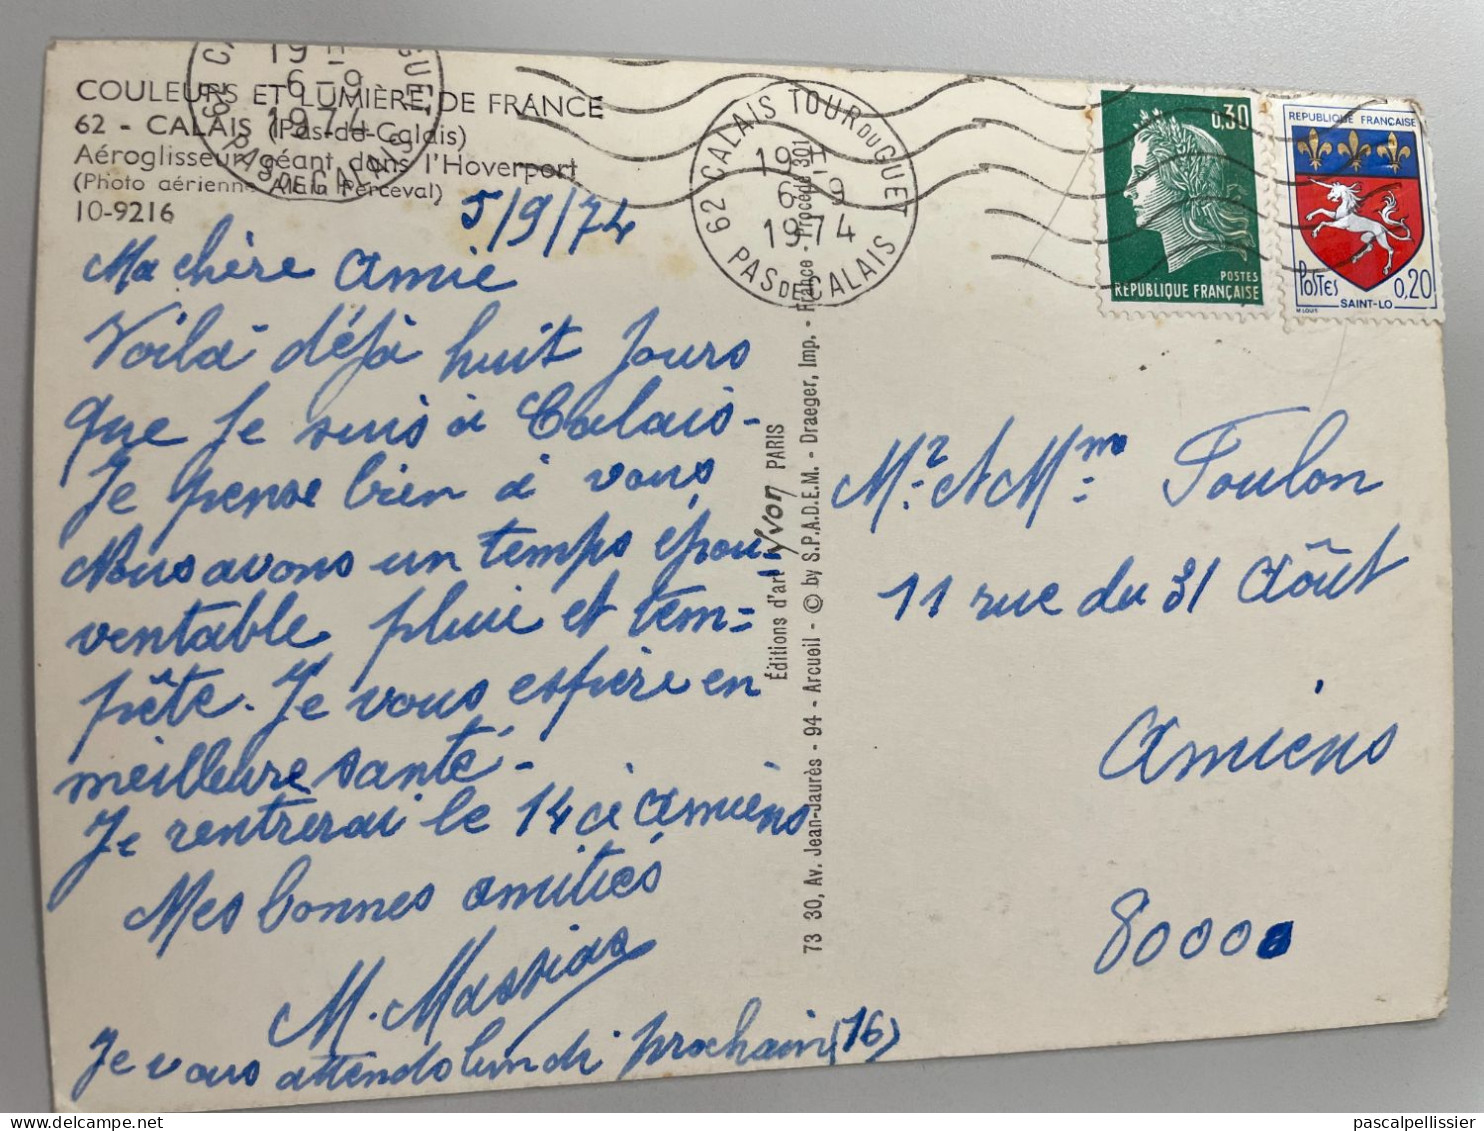 COULEURS ET LUMIÈRE DE FRANCE
62 - CALAIS (Pas-de-Calais)
Aéroglisseur géant dans l'Hoverport
(Photo aérienne Alain Perceval)
10-9216
5/9/74
Ma chère amie
Voilà déjà huit jours
que je suis à Calais-
Je pense bien à vous
Nous avons un temps épou-
ventable pluie et tem=
pête. Je vous espère en
meilleure santé-
Je rentrerai le 14 à Amiens
Mes bonnes amitiés
M. Massias
Je vous attends lundi prochain (16)
19 H
6-9
1974
PAS DE CALAIS
62 CALAIS TOUR DU GUET
19 H
6-9
1974
PAS DE CALAIS
Éditions d'art Yvon PARIS
73 30, Av. Jean-Jaurès - 94 - Arcueil - © by S.P.A.D.E.M. - Draeger, Imp. - France - Procédé 301
0,30
POSTES
RÉPUBLIQUE FRANÇAISE
REPUBLIQUE FRANÇAISE
POSTES
0,20
SAINT-LO
M. LOUIS
Mr et Mme Toulon
11 rue du 31 Août
Amiens
80000
pascalpellissier